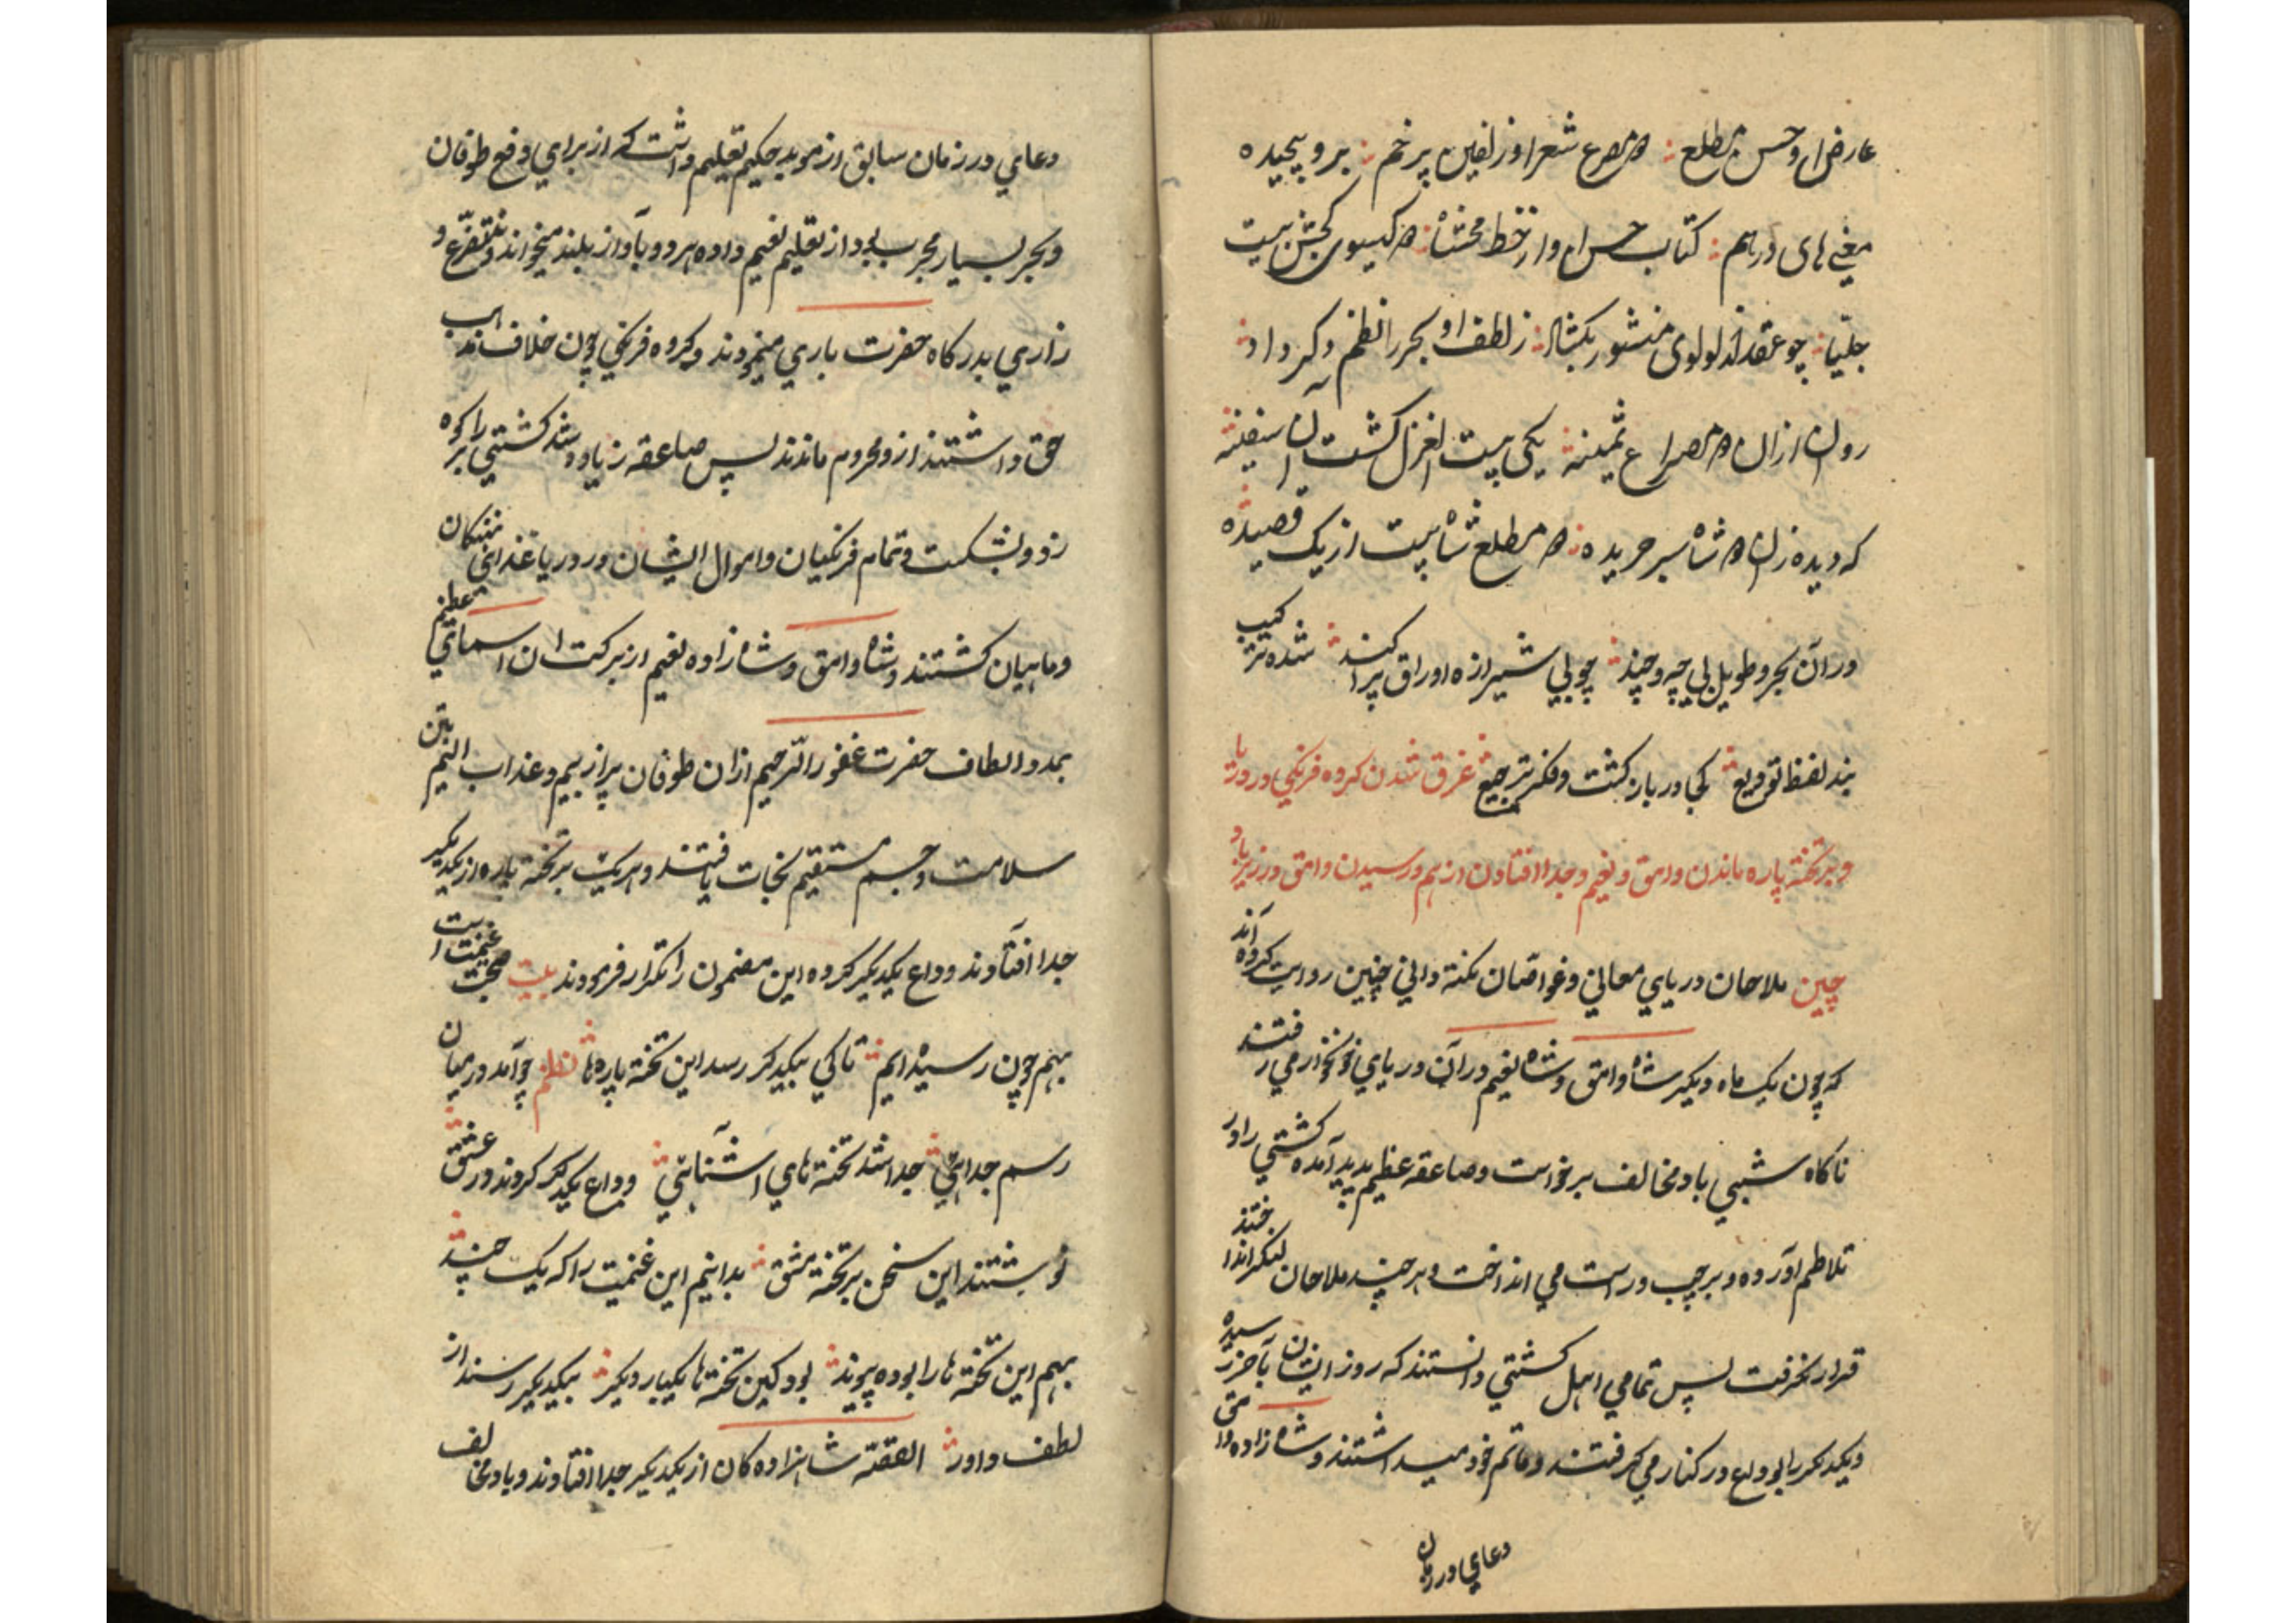 عارض او حسن مطلع دو مصرع شعر او زلفین پر خم برو پیچیده
معنی های درهم کتاب حسن او از خط محشا دو کیسوی کجش بیت
جلیپا چو عقد از لولوی منثور بکشاد ز لطف او بحر را نظم دکر داد
روان از ان دو مصراع ثمینه یکی بیت الغزل کشت ان سفینه
که دیده زان دو شاه سر جریده دو مطلع شاه بیت از یک قصیده
در آن بحر و طویل بی چه و چند چو بی شیرازه اوراق پراکند شده ترکیب
بند لفظ توقیع کجا در بار کشت و فکر ترجیع غرق شدن کروه فرنکی در دریا
و بر تخته پاره ماندن وامق و نعیم و جدا افتادن از هم و رسیدن وامق در زیرباد
چین ملاحان دریای معانی و غواصان نکته دانی چنین روایت کرده اند
که چون یک ماه دیکر شاه وامق و شاه نعیم در آن دریای خونخوار می رفتند
ناکاه شبی باد مخالف برخواست و صاعقه عظیم پدید آمده کشتی را در
تلاطم آورده و بر چپ و راست می انداخت و هر چند ملاحان لنکر انداختند
قرار نکرفت پس تمامی اهل کشتی دانستند که روز ایشان بآخر رسیده
و یکدیکر را بوداع در کنار می کرفتند و ماتم خود میداشتند و شاه زاده وامق
دعای در زمان
دعای در زمان سابق از موبد حکیم تعلیم داشت که از برای دفع طوفان
و بحر بسیار مجرب بود از تعلیم نعیم داده هر دو بآواز بلند میخواندند و تضرع و
زاری بدرکاه حضرت باری مینمودند و کروه فرنکی چون خلاف مذهب
حق داشتند از و محروم ماندند پس صاعقه زیاد و شد کشتی را بر کوه
زد و بشکست و تمام فرنکیان و اموال ایشان در دریا غذای نهنکان
و ماهیان کشتند و شاه وامق و شاه زاده نعیم از برکت ان اسمای عظیم
بمدد الطاف حضرت غفور الرحیم ازان طوفان پر از بیم و عذاب الیم بتن
سلامت و جسم مستقیم نجات یافتند و هر یک بر تخته پاره از یکدیکر
جدا افتادند و وداع یکدیکر کرده این مضمون را تکرار فرمودند بیت صحبت غنیمت است
بهم چون رسیده ایم تا کی بیکدکر رسد این تخته پاره ها نظم چو آمد در میان
رسم جدایی جدا شد تخته های اشنایی وداع یکدکر کردند در عشق
نوشتند این سخن بر تخته مشق بدانیم این غنیمت را که یک چند
بهم این تخته ها را بوده پیوند بود کین تخته ها یکبار دیکر بیکدیکر رسند از
لطف داور القصه شاهزاده کان از یکدیکر جدا افتادند و باد مخالف